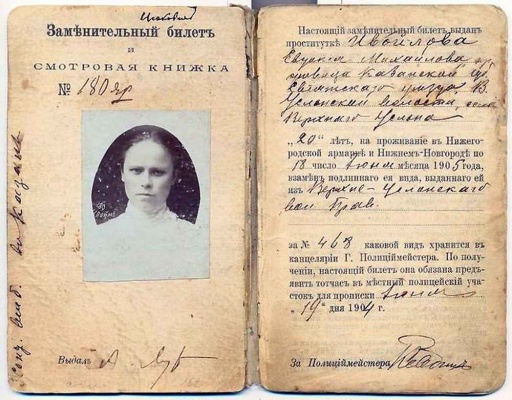 Замѣнительный билетъ
и
СМОТРОВАЯ КНИЖКА
№ 180 яр
въ Казани
Выдалъ
Настоящій замѣнительный билетъ выданъ
проституткѣ
Михайлова
Казанской
Свіяжскаго уѣзда В.
Услонской волости, села
Верхняго Услона
„20“ лѣтъ, на проживаніе въ Нижего-
родской ярмаркѣ и Нижнемъ-Новгородѣ по
18 число Іюня мѣсяца 1905 года,
взамѣнъ подлиннаго ея вида, выданнаго ей
изъ Верхне-Услонскаго
вол Прав.
за № 468 каковой видъ хранится въ
канцеляріи Г. Полиціймейстера. По полу-
ченіи, настоящій билетъ она обязана предъ-
явить тотчасъ въ мѣстный полицейскій уча-
стокъ для прописки Іюня
„19“ дня 1904 г.
За Полиціймейстера